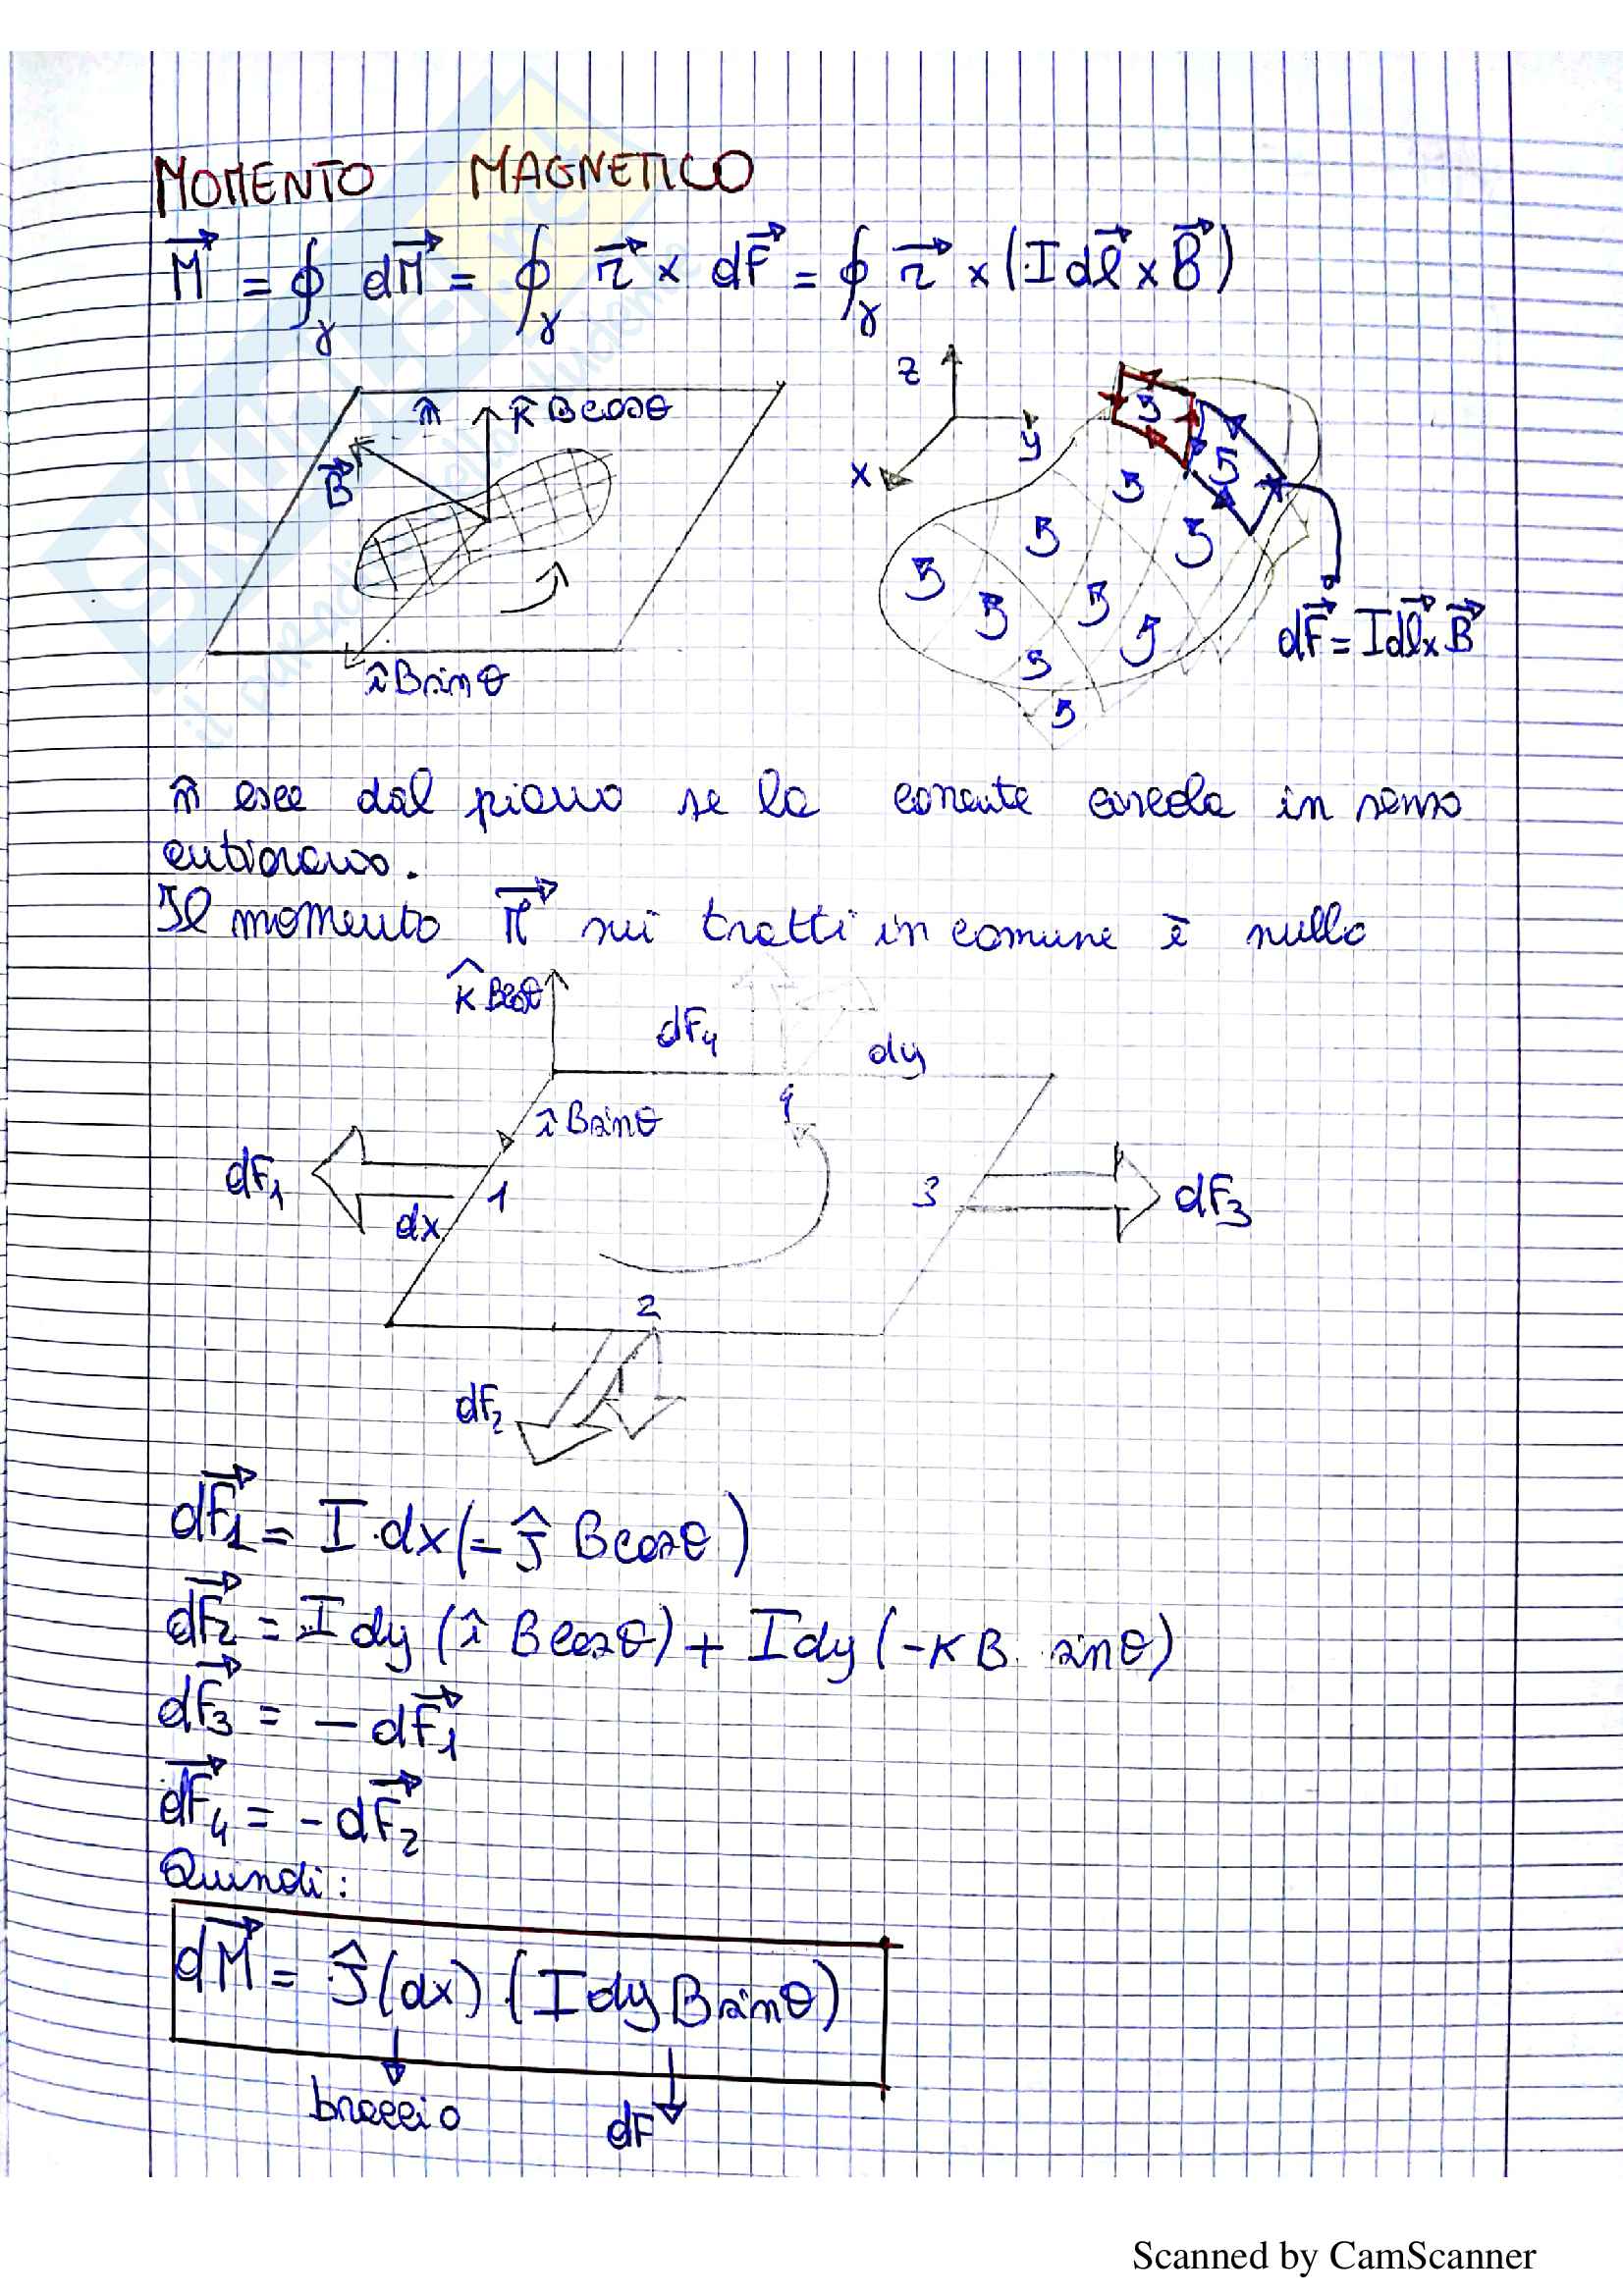 MOMENTO MAGNETICO
M⃗ = ∮γ dM⃗ = ∮γ r⃗ × dF⃗ = ∮γ r⃗ × (I dl⃗ × B⃗)
n̂ k̂ B cosθ
B⃗
î B sinθ
z
y
x
5
5
5
5
5
5
5
5
5
5
5
dF⃗ = I dl⃗ × B⃗
n̂ esce dal piano se la corrente circola in senso
antiorario.
Il momento M⃗ sui tratti in comune è nullo
k̂ B cosθ
dF4
dy
î B sinθ
4
dF1
1
dx
3
dF3
2
dF2
dF⃗1 = I·dx(-ĵ B cosθ)
dF⃗2 = I dy (î B cosθ) + I dy (-K B sinθ)
dF⃗3 = - dF⃗1
dF⃗4 = - dF⃗2
Quindi:
dM⃗ = ĵ(dx) (I dy B sinθ)
braccio
dF
Scanned by CamScanner